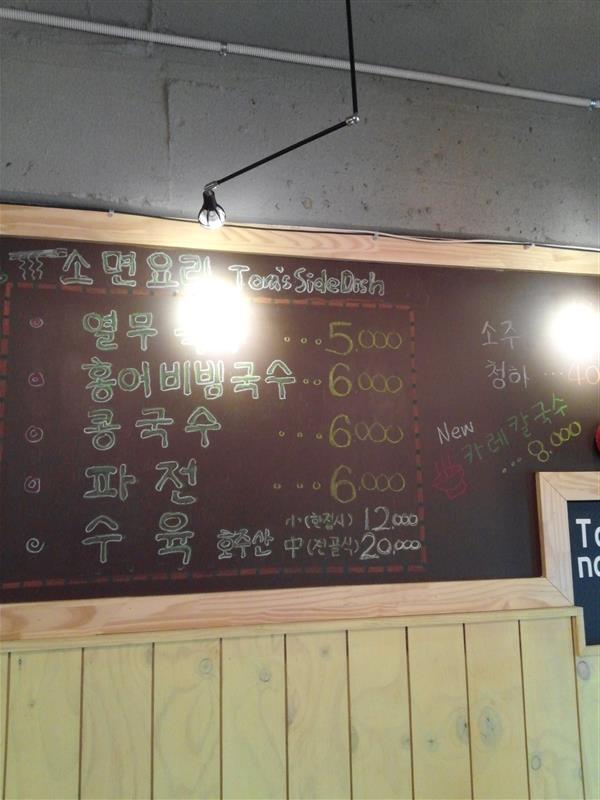 소면요리 Tom's Side Dish
열무 ...5.000
홍어비빔국수..6.000
콩국수 ...6.000
파전 ...6.000
수육 호주산 小(한접시) 12.000
中(전골식) 20.000
소주
청하 ...
New
카레칼국수
...8.000